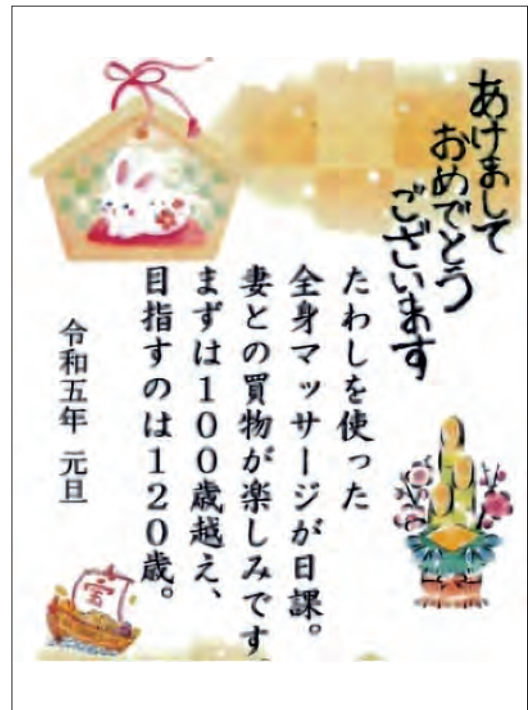 あけまして
おめでとう
ございます
たわしを使った
全身マッサージが日課。
妻との買物が楽しみです
まずは100歳越え、
目指すのは120歳。
令和五年 元旦
宝